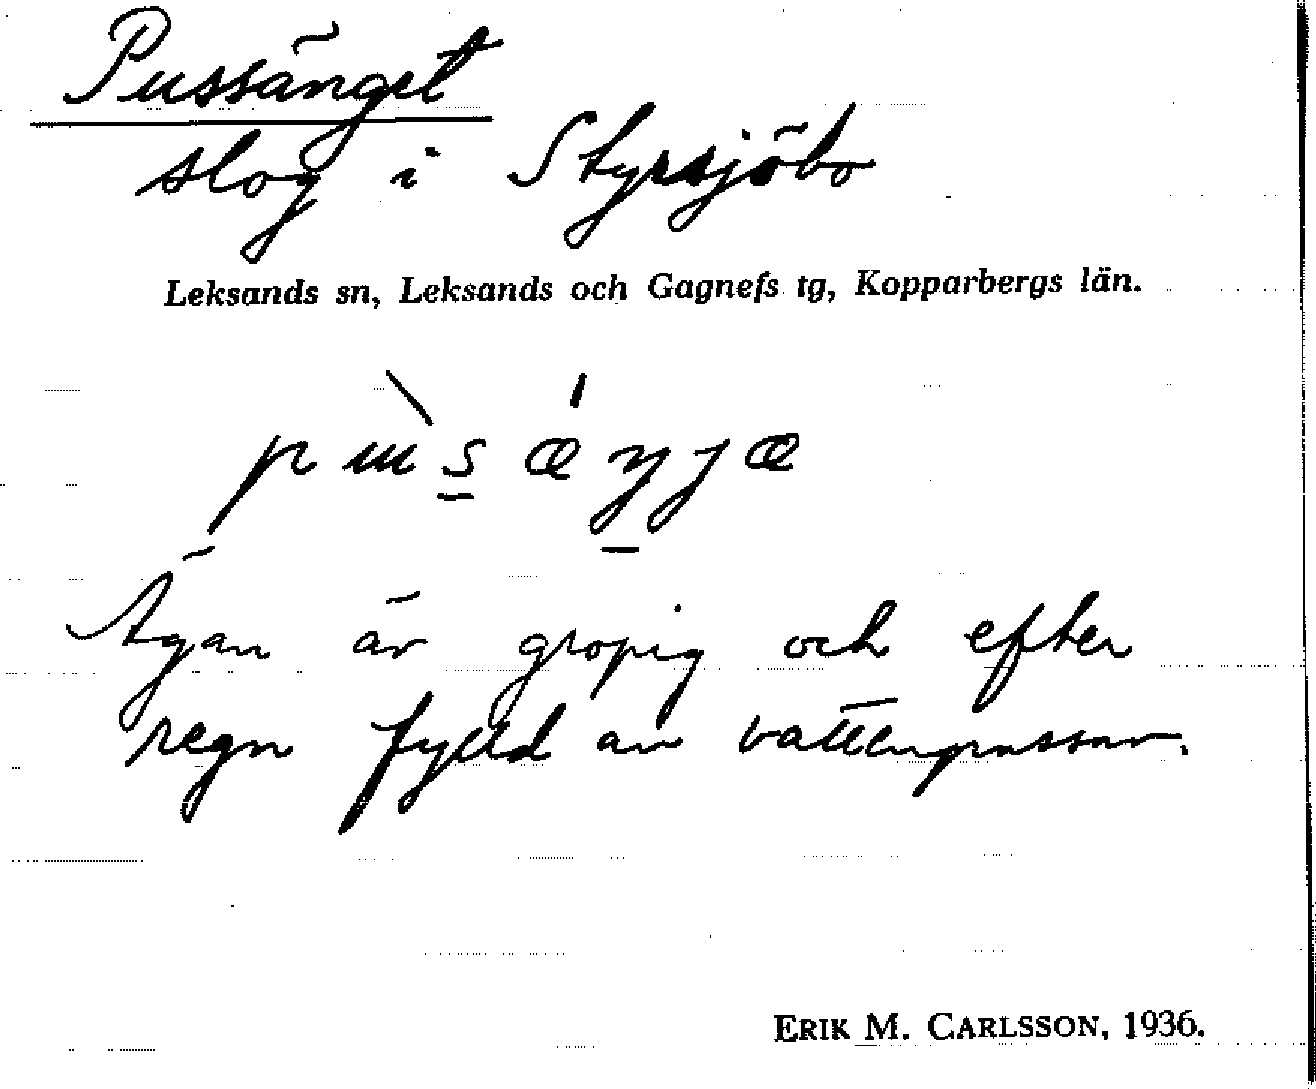 Pussänget
slog i Styrsjöbo
Leksands sn, Leksands och Gagnefs tg, Kopparbergs län.
Ägan är gropig och efter
regn fylld av vattenpussar.
ERIK M. CARLSSON, 1936.